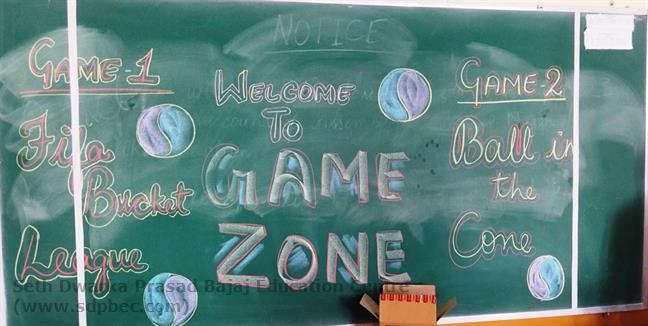 NOTICE
GAME-1
Fifa
Bucket
League
WELCOME
TO
GAME
ZONE
GAME-2
Ball in
the
Cone
Seth Dwarka Prasad Bajaj Education Centre
(www.sdpbec.com)